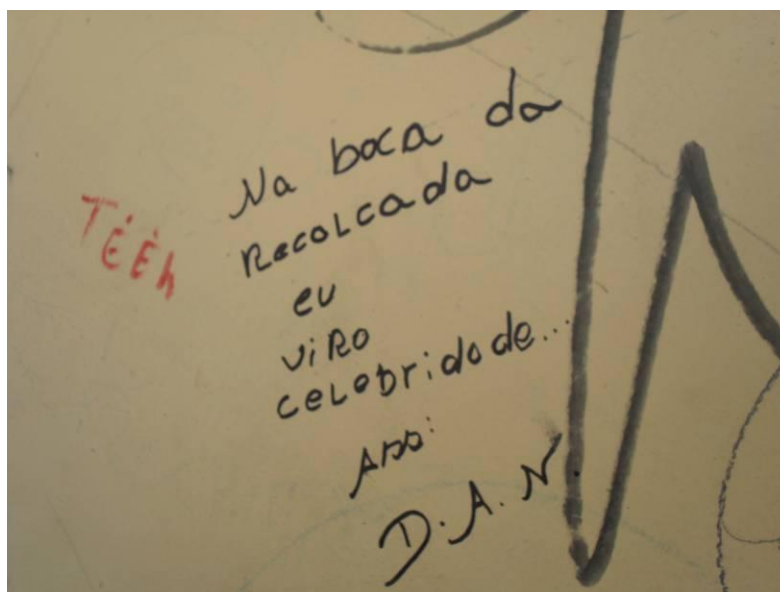 Na boca da
Recolcada
eu
viro
celebridade...
Ass:
D.A.N.
TÉÉh